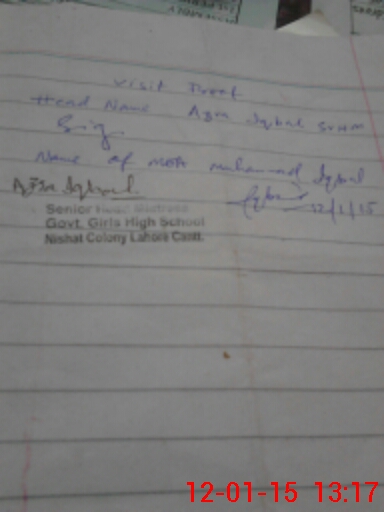 Visit Tweet
Head Name Azra Iqbal SSHM
Sig
Name of MEA Muhammad Iqbal
Azra Iqbal
Iqbal 12/1/15
Senior Head Mistress
Govt. Girls High School
Nishat Colony Lahore Cantt.
12-01-15 13:17